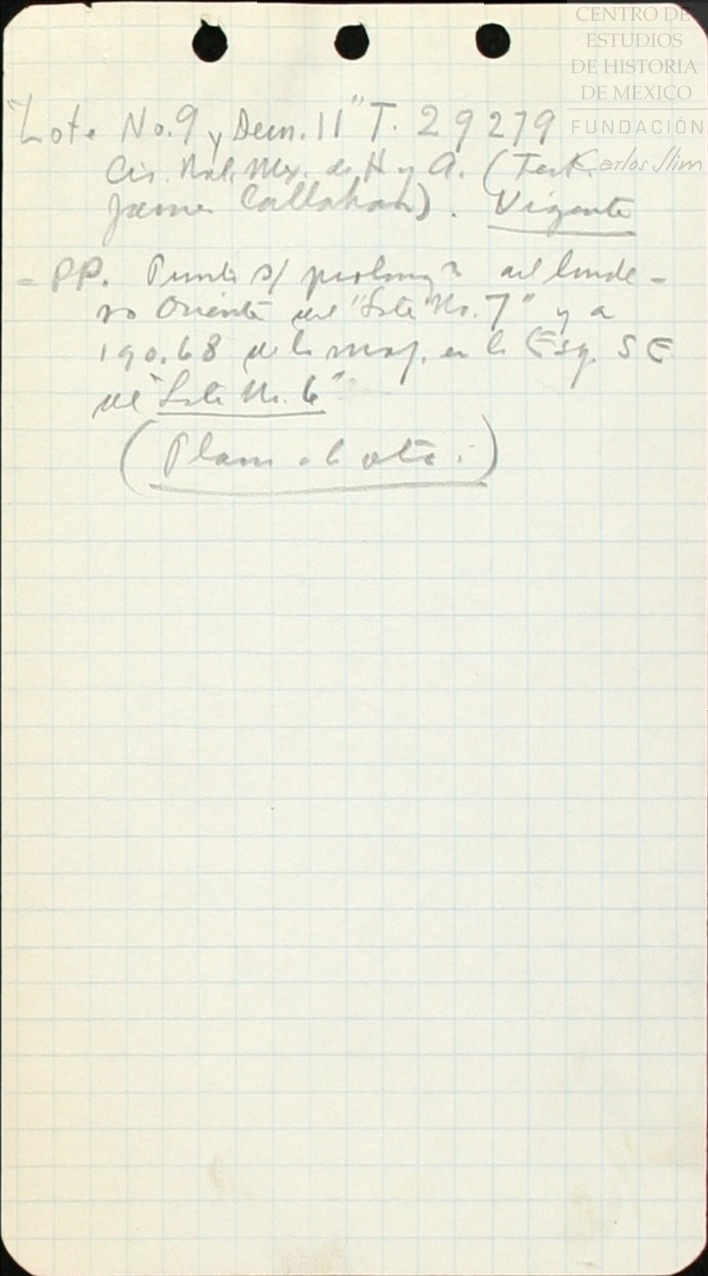 CENTRO DE
ESTUDIOS
DE HISTORIA
DE MEXICO
FUNDACIÓN
Carlos Slim
"Lote No. 9 y Dem. 11" T. 29279
Cia. Nal. Mex. de H y A. (Test.
James Callahan). Vigente
= PP. Punto s/ prolongn del linde-
ro Oriente del "Lote No. 7" y a
190.68 de la moj. en la Esq. SE
del "Lote No. 6"
(Plano